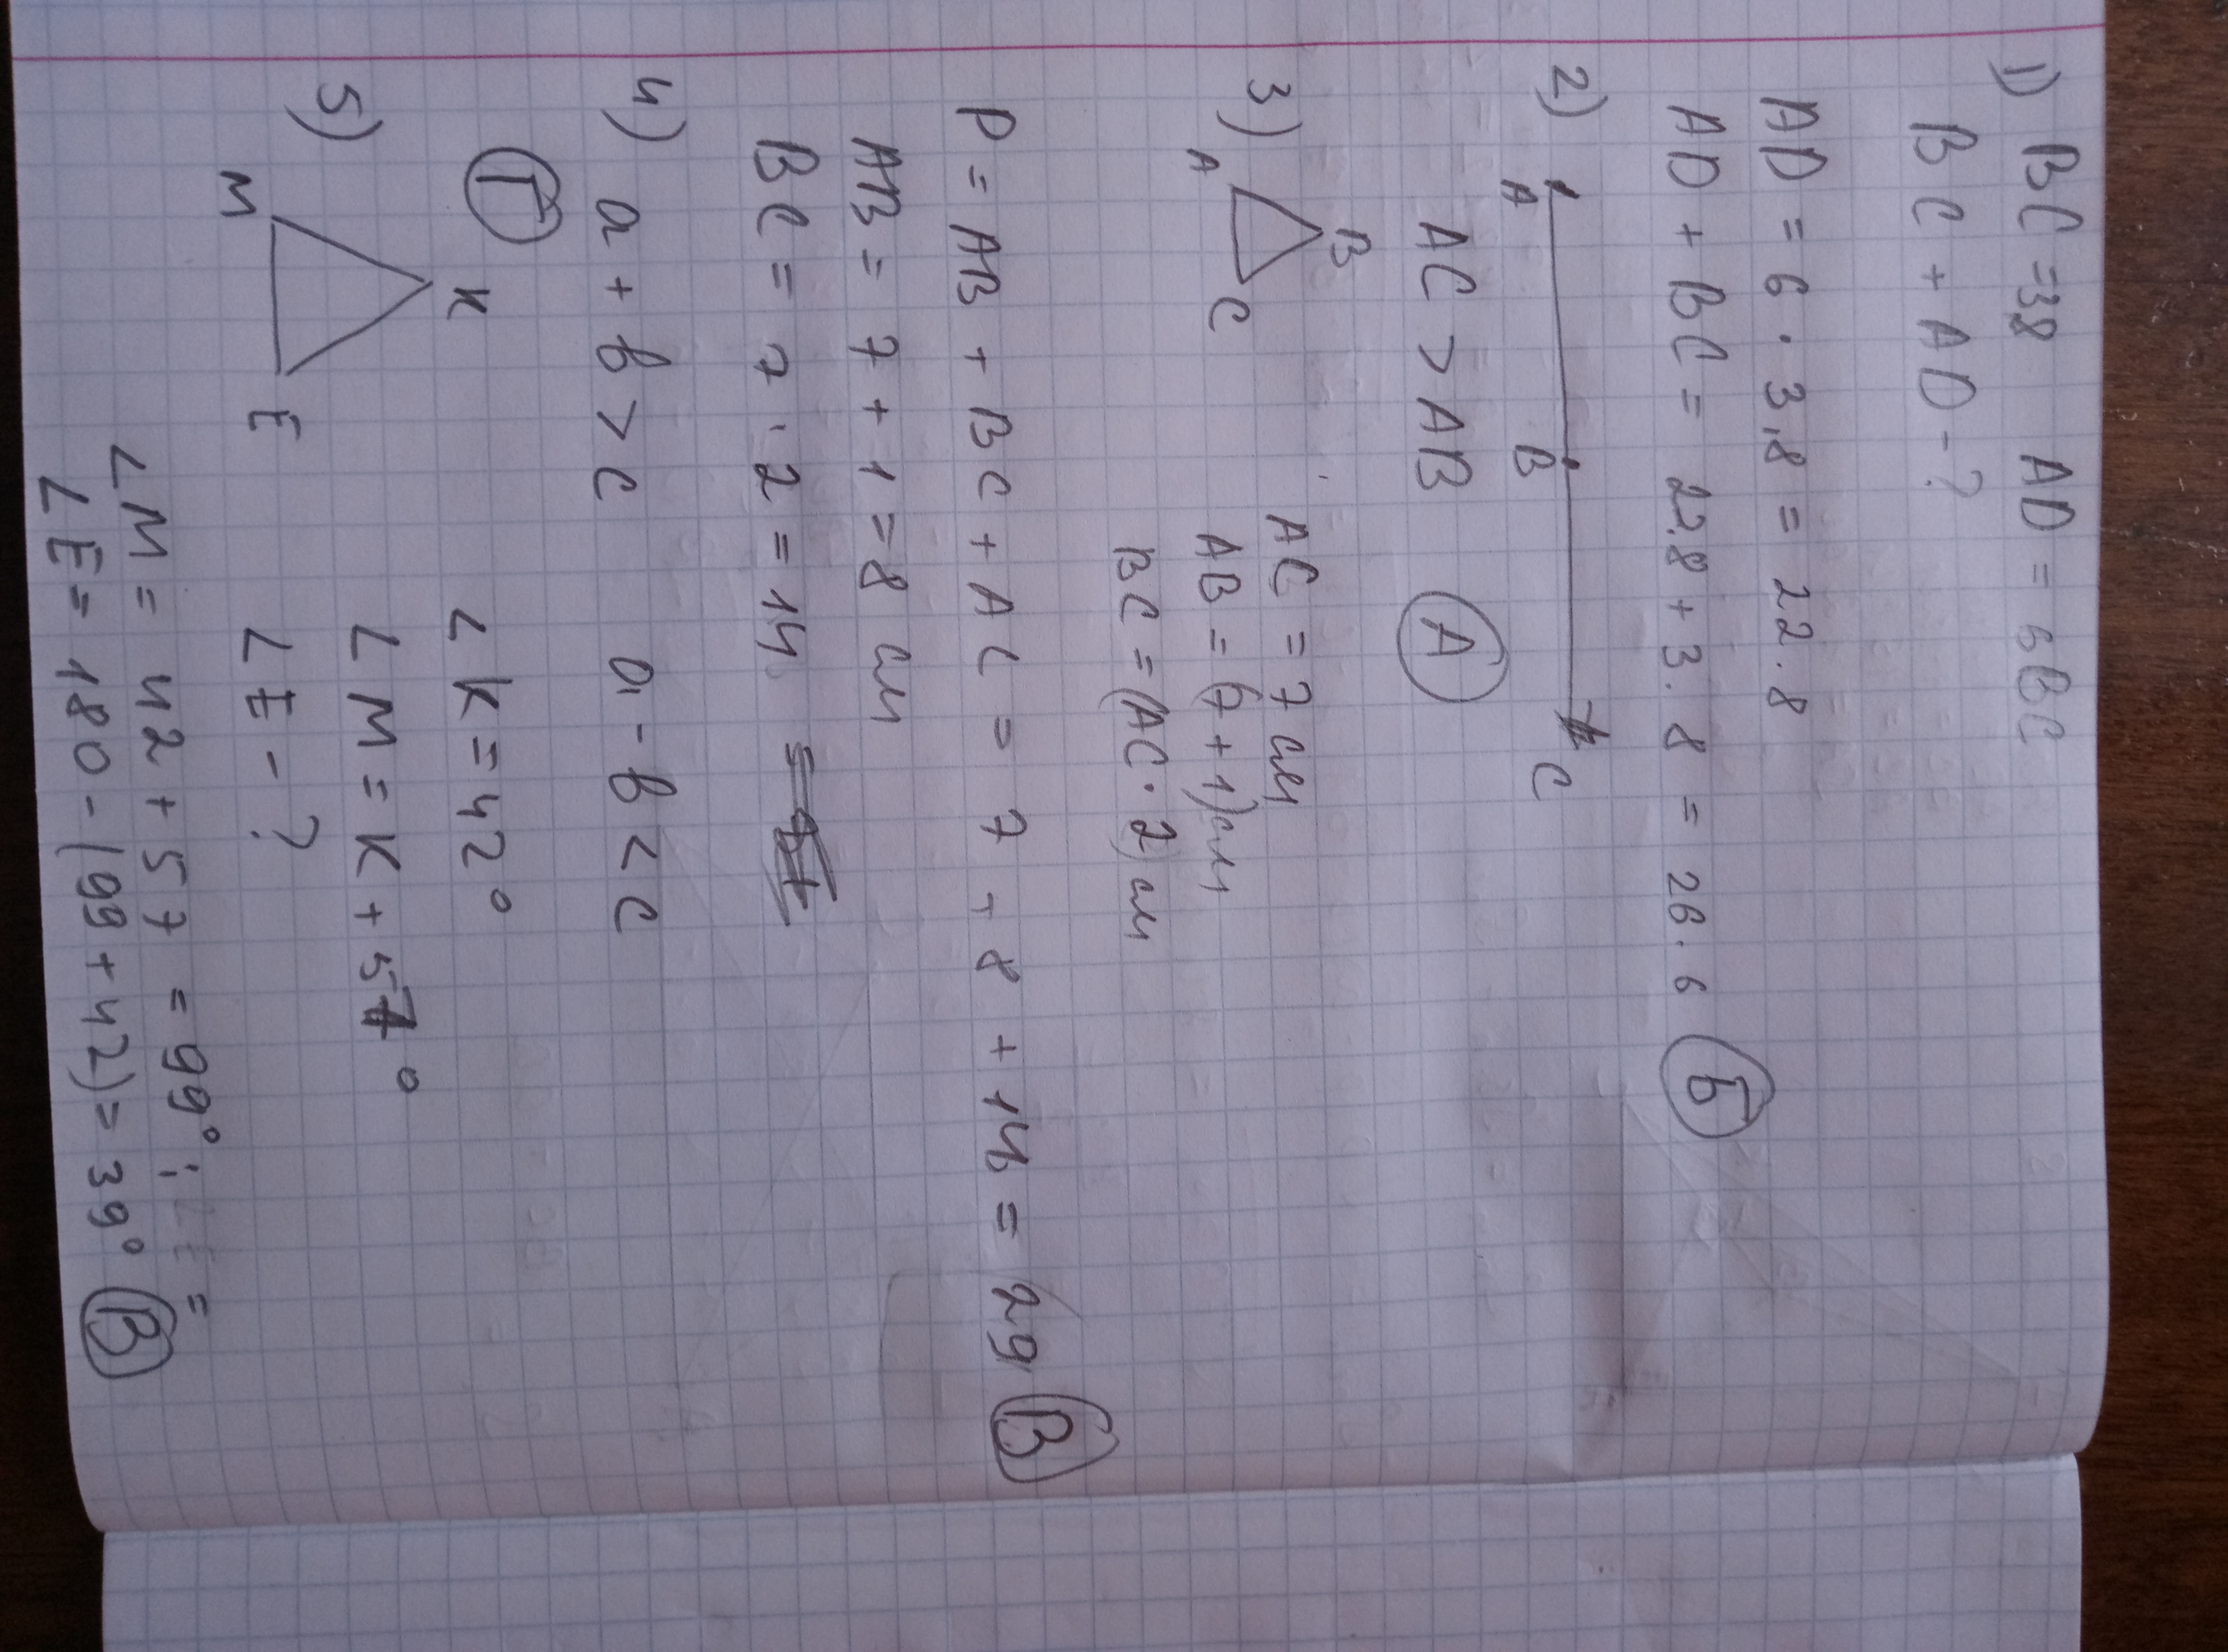 1) BC = 3,8 AD = 6BC
BC + AD - ?
AD = 6 · 3,8 = 22.8
AD + BC = 22.8 + 3.8 = 26.6 Б
2) A B C
AC > AB А
3) A B C
AC = 7 см
AB = (7 + 1) см
BC = (AC · 2) см
P = AB + BC + AC = 7 + 8 + 14 = 29 В
AB = 7 + 1 = 8 см
BC = 7 · 2 = 14
4) a + b > c a - b < c
Г
5) M K E
∠K = 42°
∠M = K + 57°
∠E - ?
∠M = 42 + 57 = 99° ; ∠E =
∠E = 180 - (99 + 42) = 39° В